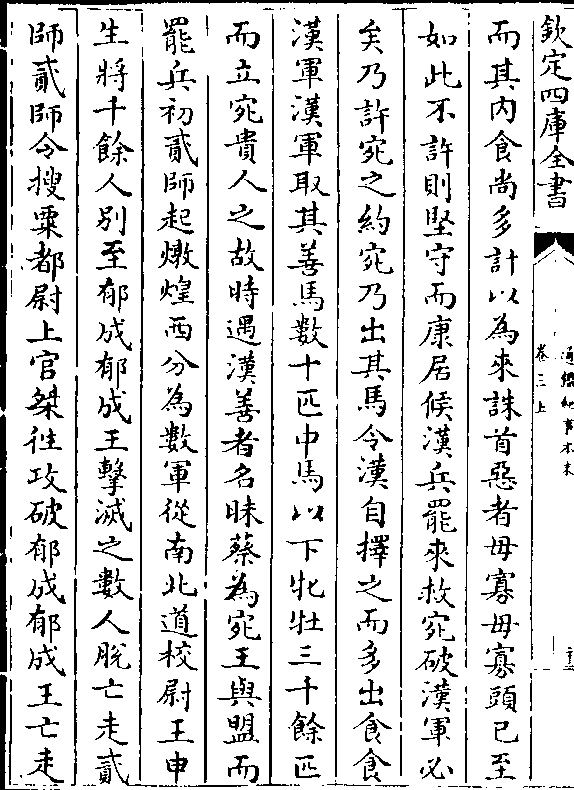 欽定四庫全書
通鑑紀事本末
卷三上
而其内食尚多計以為來誅首惡者毋寡毋寡頭已至
如此不許則堅守而康居候漢兵罷來救宛破漢軍必
矣乃許宛之約宛乃出其馬令漢自擇之而多出食食
漢軍漢軍取其善馬數十匹中馬以下牝牡三千餘匹
而立宛貴人之故時遇漢善者名昧蔡為宛王與盟而
罷兵初貳師起燉煌西分為數軍從南北道校尉王申
生將千餘人别至郁成郁成王擊滅之數人脫亡走貳
師貳師令搜粟都尉上官桀往攻破郁成郁成王亡走